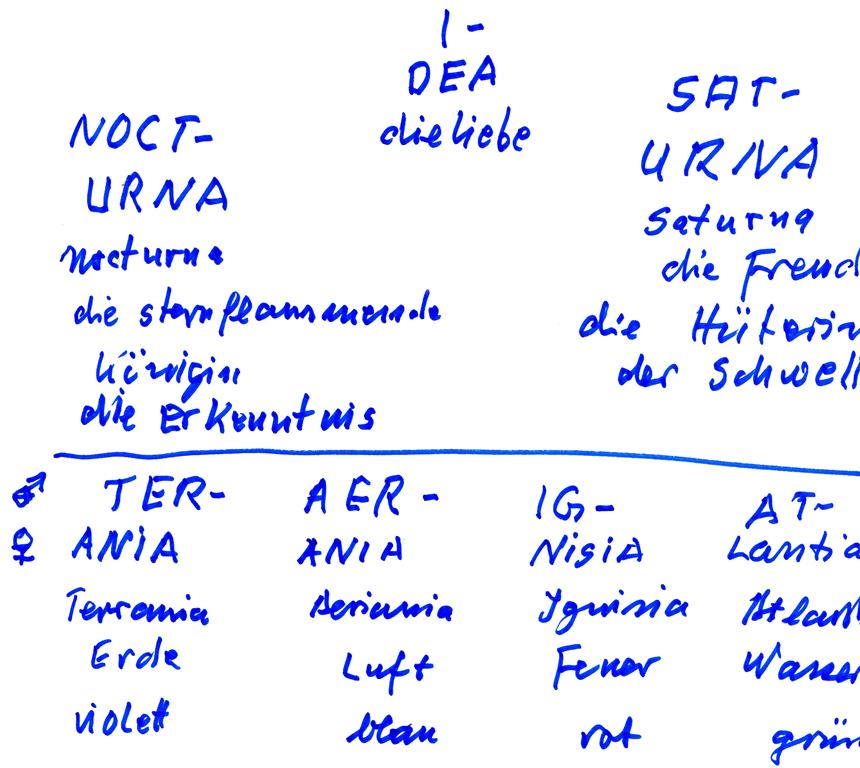 I-
DEA
die liebe
NOCT-
URNA
nocturna
die sternflammende
Königin
die Erkenntnis
SAT-
URNA
Saturna
die Freud
die Hüterin
der Schwell
♂ TER- AER- IG- AT-
♀ ANIA ANIA NisiA Lantia
Terrania Aeriania Ygnisia Atlant
Erde Luft Feuer Wasser
violett blau rot grün